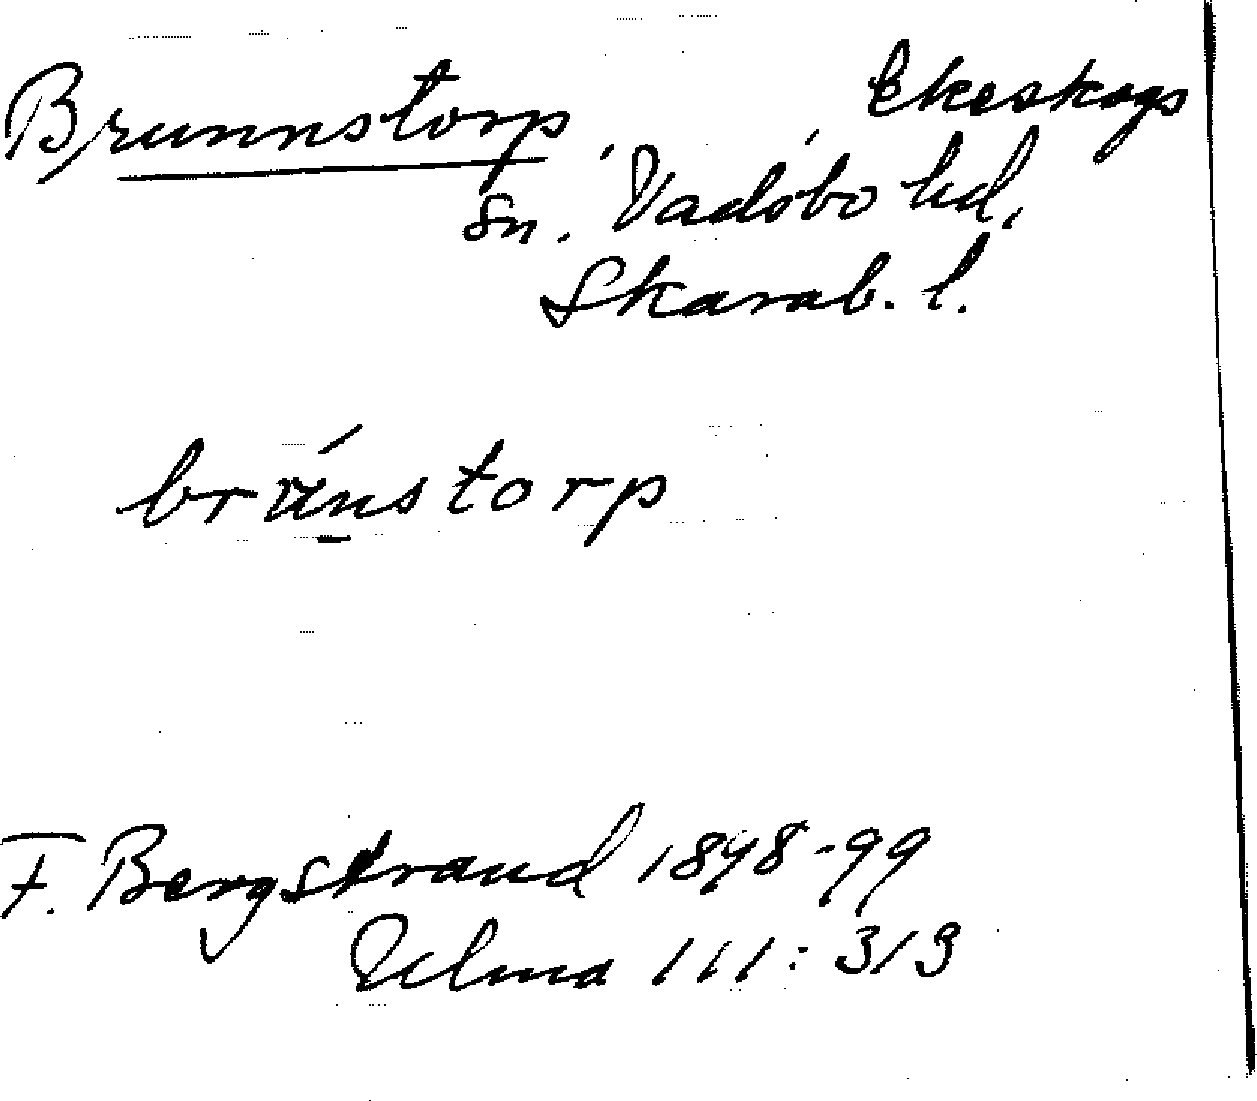 Brunnstorp, Ekeskogs
sn. Vadsbo hd,
Skarab. l.
brúnstorp
F. Bergstrand 1898-99
Ulma 111: 313